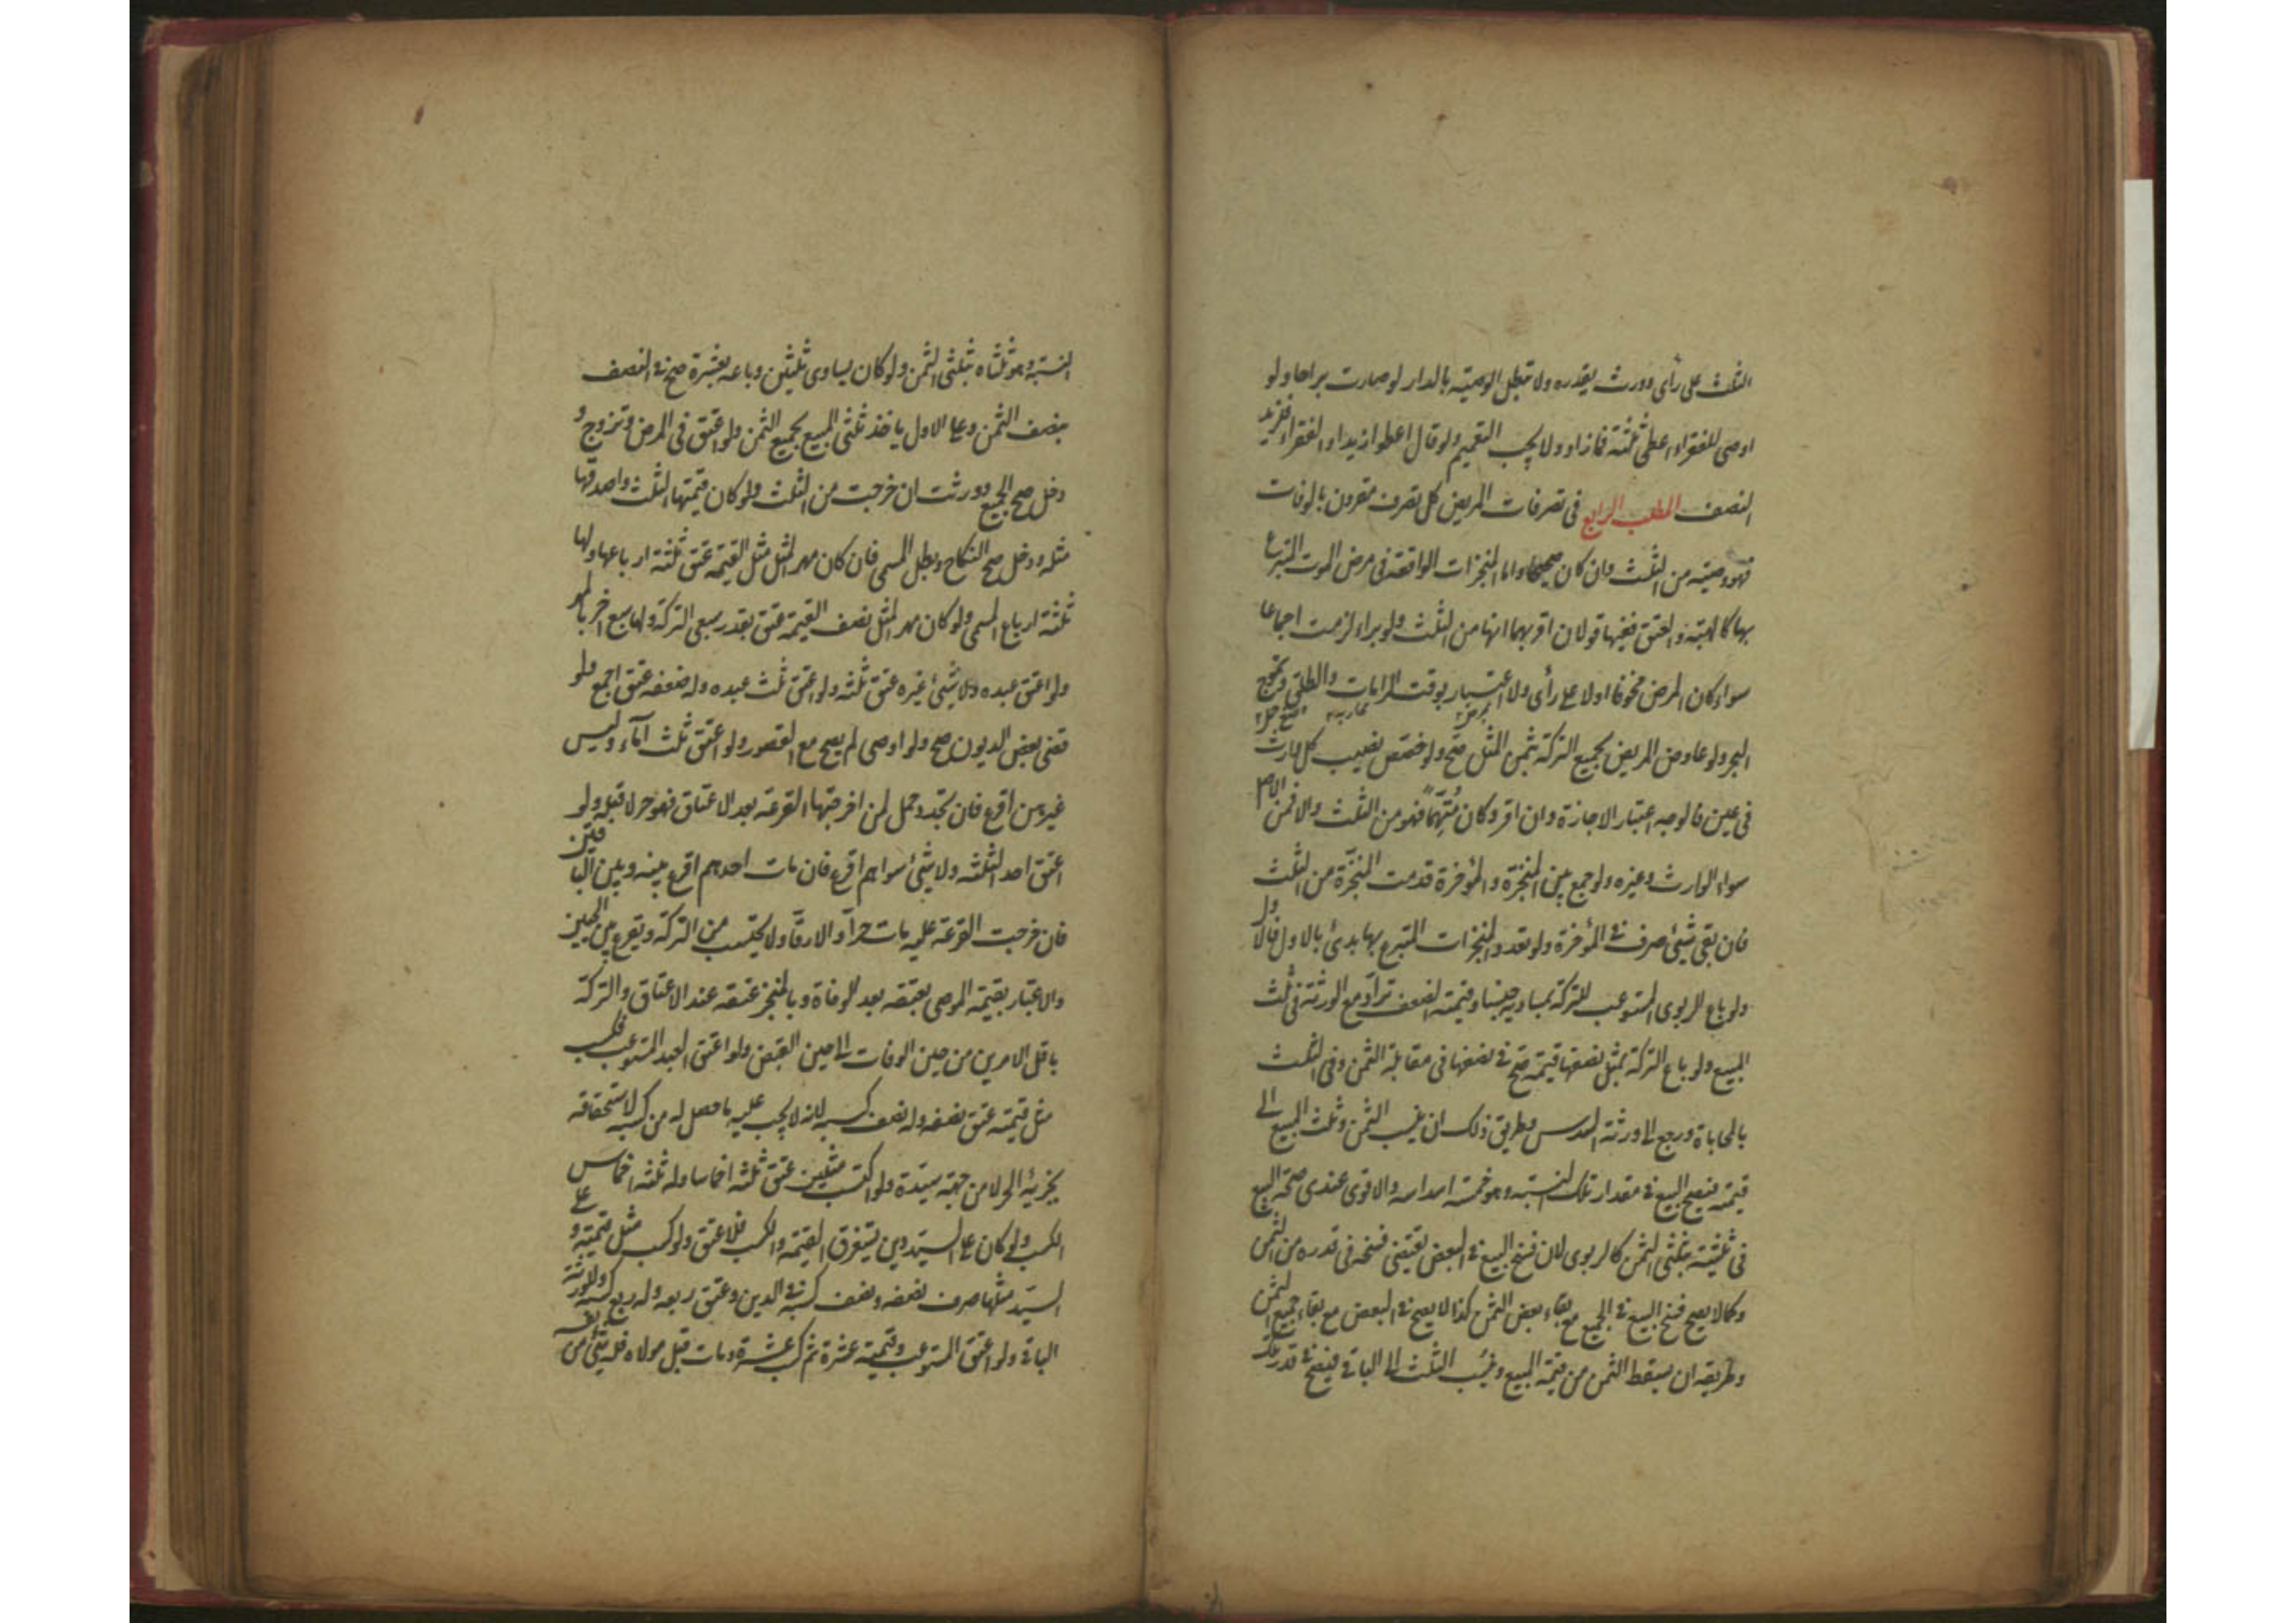 الثلث على رأى وورث بقدره ولا تبطل الوصيته بالدار لو صارت براحا ولو
اوصى للفقراء اعطى ثلثة فمازاد ولا يجب التعميم ولو قال اعطوا زيدا والفقراء فلزيد
النصف المطلب الرابع فى تصرفات المريض كل تصرف مقرون بالوفات
فهو وصيته من الثلث وان كان صحيحا واما المنجزات الواقعة فى مرض الموت المتبرع
بها كالهبته والعتق ففيها قولان اقربهما انها من الثلث ولو براء لزمت اجماعا
سواء كان المرض مخوفا اولا على رأى ولا اعتبار بوقت المرامات والطلق وتموج
البحر ولو عاوض المريض بجميع التركة بثمن المثل صح ولو خصص نصيب كل وارث
فى عين فالوجه اعتبار الاجازة وان اقر وكان متهما فهو من الثلث والا فمن الاصل
سواء الوارث وغيره ولو جمع بين المنجزة والمؤخرة قدمت المنجزة من الثلث
فان بقى شئ صرف فى المؤخرة ولو تعدد المنجزات المتبرع بها بدئ بالاول فالاول
ولو باع الربوى المستوعب للتركة بمساويه جنسا وقيمته الضعف تراد مع الورثة فى ثلث
المبيع ولو باع التركة بمثل نصفها قيمته صح فى نصفها فى مقابلة الثمن وفى الثلث
بالمحاباة ورجع الى الورثة السدس وطريق ذلك ان ينسب الثمن وثلث المبيع الى
قيمته فيصح البيع فى مقدار تلك النسبته وهو خمسة اسداسه والاقوى عندى صحة البيع
فى ثلثيه بثلثى الثمن كالربوى لان فسخ البيع فى البعض يقتضى فسخه فى قدره من الثمن
وكما لا يصح فسخ البيع فى الجميع مع بقاء بعض الثمن كذا لا يصح فى البعض مع بقاء جميع الثمن
وطريقه ان يسقط الثمن من قيمة المبيع وينسب الثلث الى الباقى فيصح فى قدر تلك
النسبته وهو ثلثاه بثلثى الثمن ولو كان يساوى ثلثين وباعه بعشرة صح فى النصف
بنصف الثمن وعلى الاول ياخذ ثلثى المبيع بجميع الثمن ولو اعتق فى المرض وتزوج و
دخل صح الجميع وورثت ان خرجت من الثلث ولو كان قيمتها الثلث واصدقها
مثله ودخل صح النكاح وبطل المسمى فان كان مهر المثل مثل القيمة عتق ثلثة ارباعها ولها
ثلثة ارباع المسمى ولو كان مهر المثل نصف القيمة عتق بقدر سبعى التركة ولها سبع اخر بالمهر
ولو اعتق عبده ولا شئ غيره عتق ثلثه ولو اعتق ثلث عبده وله ضعفه عتق اجمع ولو
قضى بعض الديون صح ولو اوصى لم يصح مع القصور ولو اعتق ثلث آماء وليس
غيرهن اقرع فان تجدد حمل لمن اخرجتها القرعة بعد الاعتاق فهو حر لا قبله ولو
اعتق احد الثلثه ولا شئ سواهم اقرع فان مات احدهم اقرع بينه وبين الباقين
فان خرجت القرعة عليه مات حراً والا رقاً ولا يحتسب من التركة ويقرع بين الحيين
والاعتبار بقيمة الموصى بعتقه بعد الوفاة وبالمنجز عتقه عند الاعتاق والتركة
باقل الامرين من حين الوفات الى حين القبض ولو اعتق العبد المستوعب فكسب
مثل قيمته عتق نصفه وله نصف كسبه لانه لا يحتسب عليه ما حصل له من كسبه لاستحقاقه
بجزئه الحر لا من جهة سيده ولو اكتسب مثلين عتق ثلثة اخماسا وله ثلثة اخماس
الكسب ولو كان على السيد دين يستغرق القيمة والكسب فلا عتق ولو كسب مثل قيمته و
على السيد مثلها صرف نصفه ونصف كسبه فى الدين وعتق ربعه وله ربع كسبه وللورثة
الباقى ولو اعتق المستوعب وقيمته عشرة ثم كسب عشرة ومات قبل مولاه فله شئ من